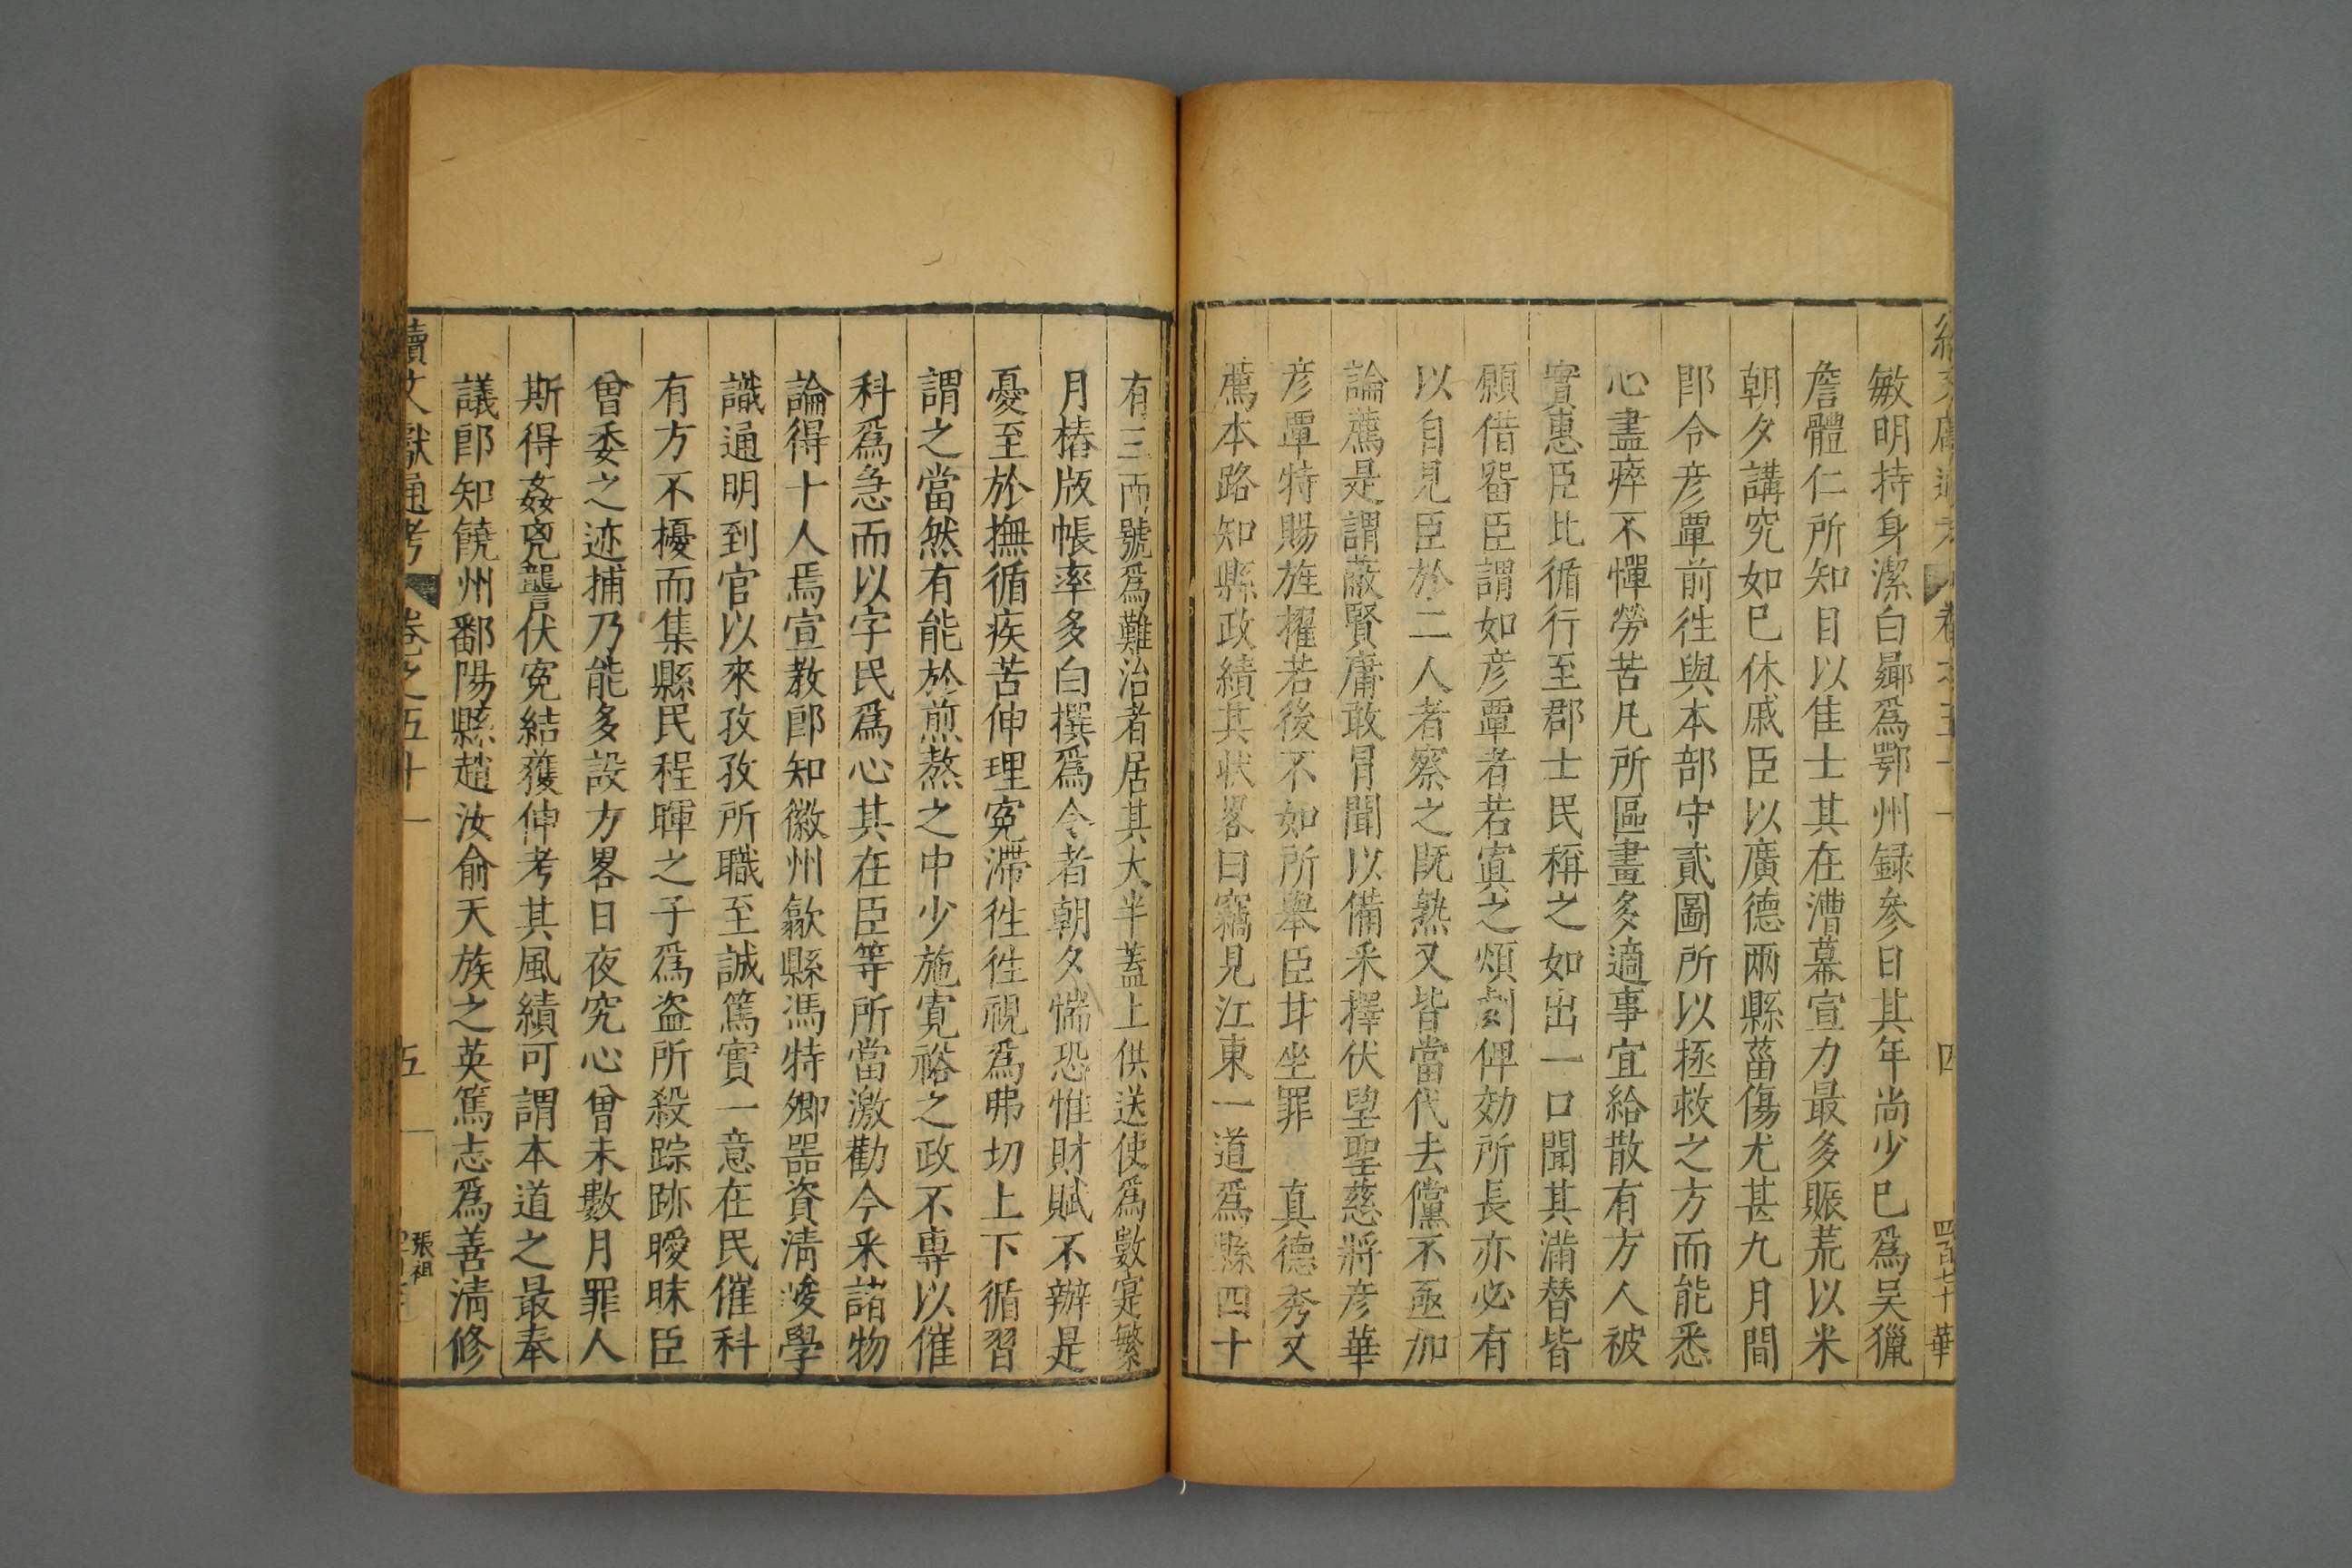 敏明持身潔白曏爲鄂州録參日其年尚少已爲吴獵
詹體仁所知目以佳士其在漕幕宣力最多賑荒以米
朝夕講究如已休戚臣以廣德兩縣菑傷尤甚九月間
即令彦覃前徃與本部守貳圖所以拯救之方而能悉
心盡瘁不憚勞苦凡所區畫多適事宜給散有方人被
實惠臣比循行至郡士民稱之如出一口聞其滿替皆
願借畱臣謂如彦覃者若寘之煩劇俾効所長亦必有
以自見臣於二人者察之既熟又皆當代去儻不亟加
論薦是謂蔽賢庸敢冐聞以備采擇伏望聖慈將彦華
彦覃特賜旌擢若後不如所舉臣甘坐罪 真德秀又
薦本路知縣政績其狀畧曰竊見江東一道爲縣四十
有三而號爲難治者居其大半蓋上供送使爲數寔繁
月樁版帳率多白撰爲令者朝夕惴恐惟財賦不辦是
憂至於撫循疾苦伸理寃滯徃徃視爲弗切上下循習
謂之當然有能於煎熬之中少施寛裕之政不專以催
科爲急而以字民爲心其在臣等所當激勸今采諸物
論得十人焉宣教郎知徽州歙縣馮特卿器資清峻學
識通明到官以來孜孜所職至誠篤實一意在民催科
有方不擾而集縣民程暉之子爲盗所殺踪跡曖昧臣
曾委之迹捕乃能多設方畧日夜究心曾未數月罪人
斯得姦兇讋伏寃結獲伸考其風績可謂本道之最奉
議郎知饒州鄱陽縣趙汝俞天族之英篤志爲善清修
續文獻通考 卷之五十一 五 張祖